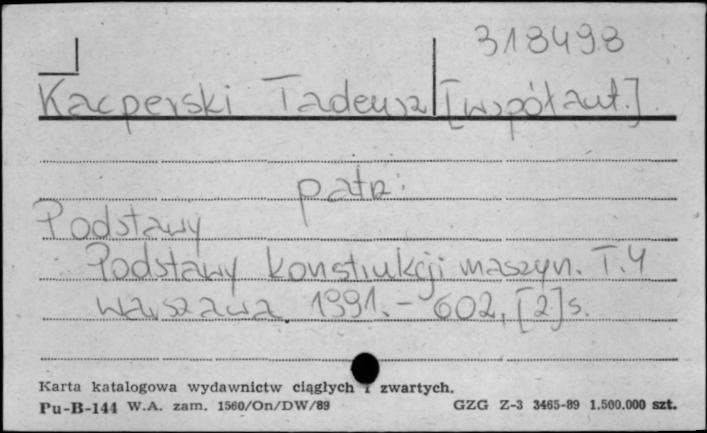 318498
Kacperski Tadeusz [współaut.]
patrz:
Podstawy
Podstawy konstrukcji maszyn. T.4
Warszawa, 1991. - 602, [2] s.
Karta katalogowa wydawnictw ciągłych i zwartych.
Pu-B-144 W.A. zam. 1560/On/DW/89 GZG Z-3 3465-89 1.500.000 szt.